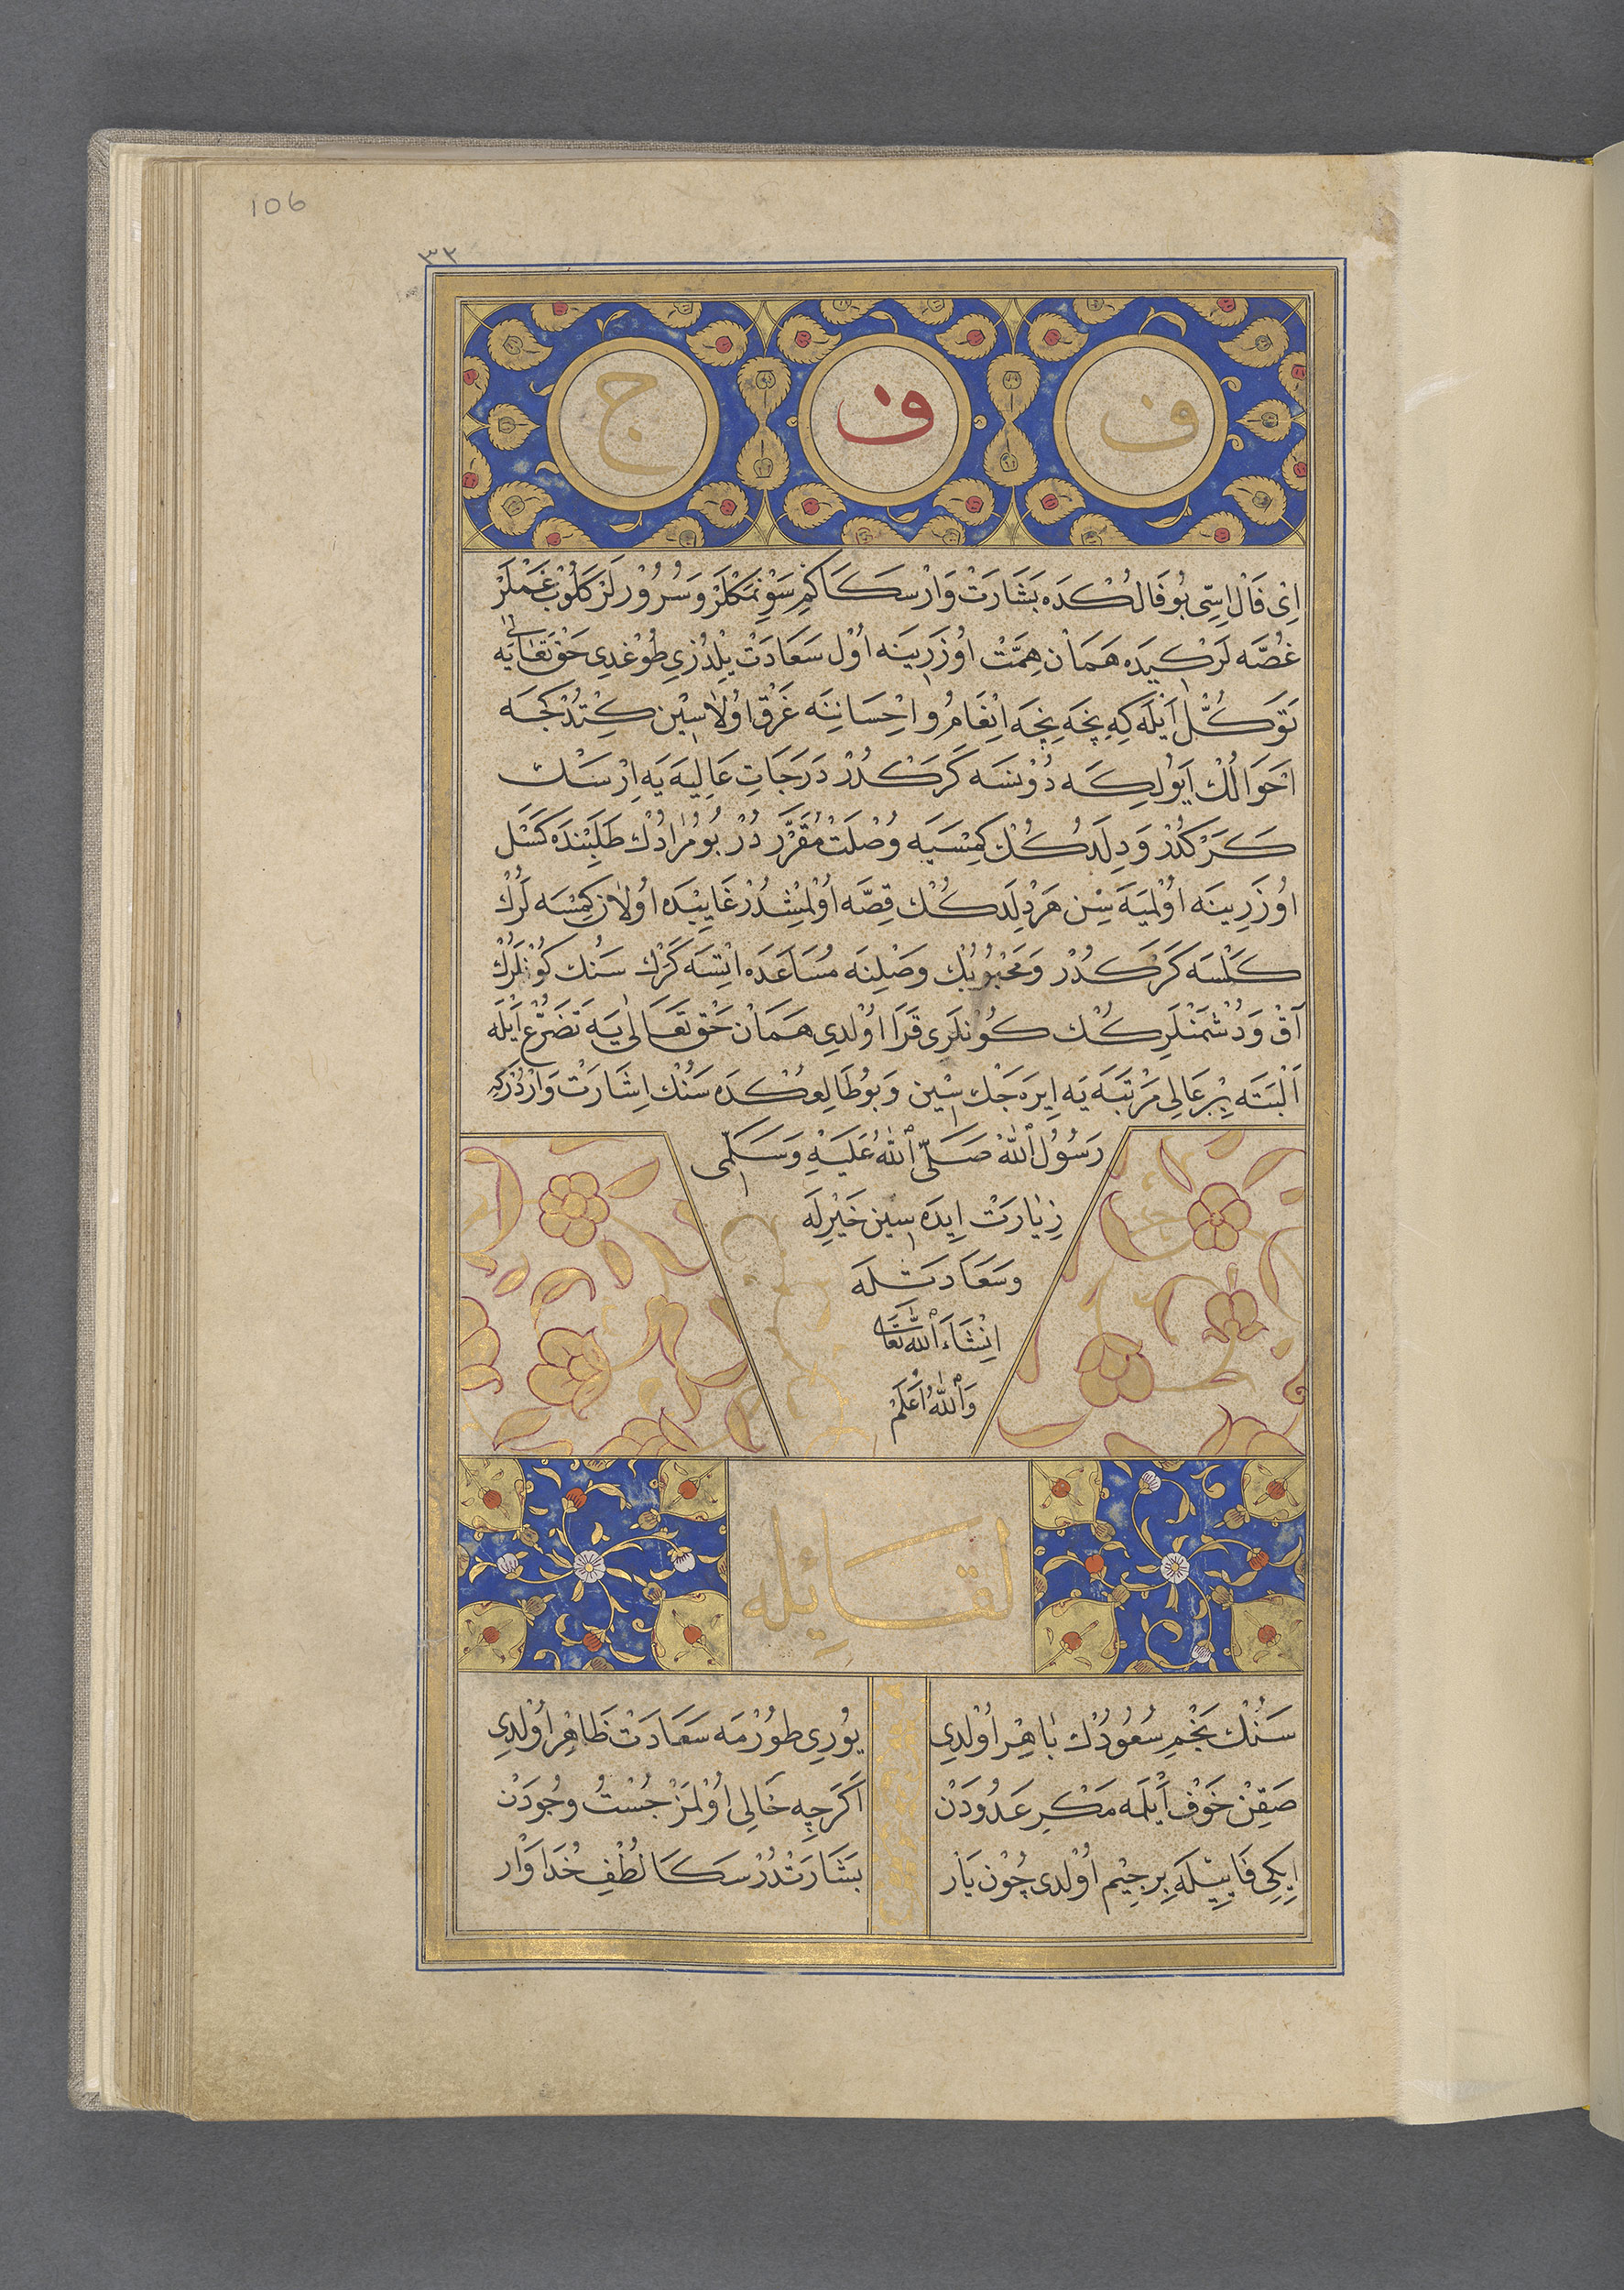 106
٣٢
ف ف ج
اِیْ فَالْ اِسِّی بُو فَالُکْدَه بَشَارَتْ وَارْ سَکَا کِمْ سَوِنْمَکْلَرْ وَ سُرُورْلَرْ کَلُوبْ غَمْلَرْ
غُصَّه لَرْ کِیدَه هَمَانْ هِمَّتْ اُوزَرِینَه اُوْل سَعَادَتْ یِلْدُزِی طُوغْدِی حَقْ تَعَالٰی یَه
تَوَکُّلْ اَیْلَه کِه نِیچَه نِیچَه اِنْعَامُ و اِحْسَانِنَه غَرْقْ اُولَاسِیْن کِتْدُکْجَه
اَحْوَالُکْ اَیُولِکَه دُونْسَه کَرَکْدُرْ دَرَجَاتِ عَالِیَه یَه اِرْسَکْ
کَرَکْدُرْ وَ دِلَدُکُکْ کِمْسَیَه وُصْلَتْ مُقَرَّرْ دُرْ بُو مُرَادُکْ طَلَبِنْدَه کَسَل
اُوزَرِینَه اُوْلْمَیَه سِنْ هَرْ دِلَدُکُکْ قِصَّه اُوْلْمِشْدُرْ غَایِبْدَه اُولَانْ کِمْسَه لَرُکْ
کَلْسَه کَرَکْدُرْ وَ مَحْبُوبُکْ وَصْلِنَه مُسَاعَدَه اِتْسَه کَرَکْ سَنُکْ کُونْلَرُکْ
آقْ وَ دُشْمَنْلَرِکُکْ کُونْلَرِی قَرَا اُوْلْدِی هَمَانْ حَقْ تَعَالٰی یَه تَضَرُّعْ اَیْلَه
اَلْبَتَّه بِرْ عَالِی مَرْتَبَه یَه اِیرَه جَکْ سِیْن وَ بُو طَالِعُکْدَه سَنُکْ اِشَارَتْ وَارْدُرْ کِه
رَسُولُ ٱللّٰهْ صَلَّی ٱللّٰهُ عَلَیْهِ وَسَلَّمِی
زِیَارَتْ اِیدَه سِیْن خَیْرِلَه
وَ سَعَادَتْلَه
اِنْشَاءَ ٱللّٰهُ تَعَالٰی
وَٱللّٰهُ اَعْلَمْ
لقائله
سَنُکْ نَجْمِ سُعُودُکْ بَاهِرْ اُوْلْدِی یُورِی طُورْمَه سَعَادَتْ ظَاهِرْ اُوْلْدِی
صَقِنْ خَوْفْ اَیْلَمَه مَکْرِ عَدُودَنْ اَکَرْچِه خَالِی اُوْلْمَزْ جُسْتُ وجُودَنْ
اِیکِی فَایِیْلَه بِرْ جِیْم اُوْلْدِی چُونْ یَارْ بَشَارَتْدُرْ سَکَا لُطْفِ خُدَا وَارْ